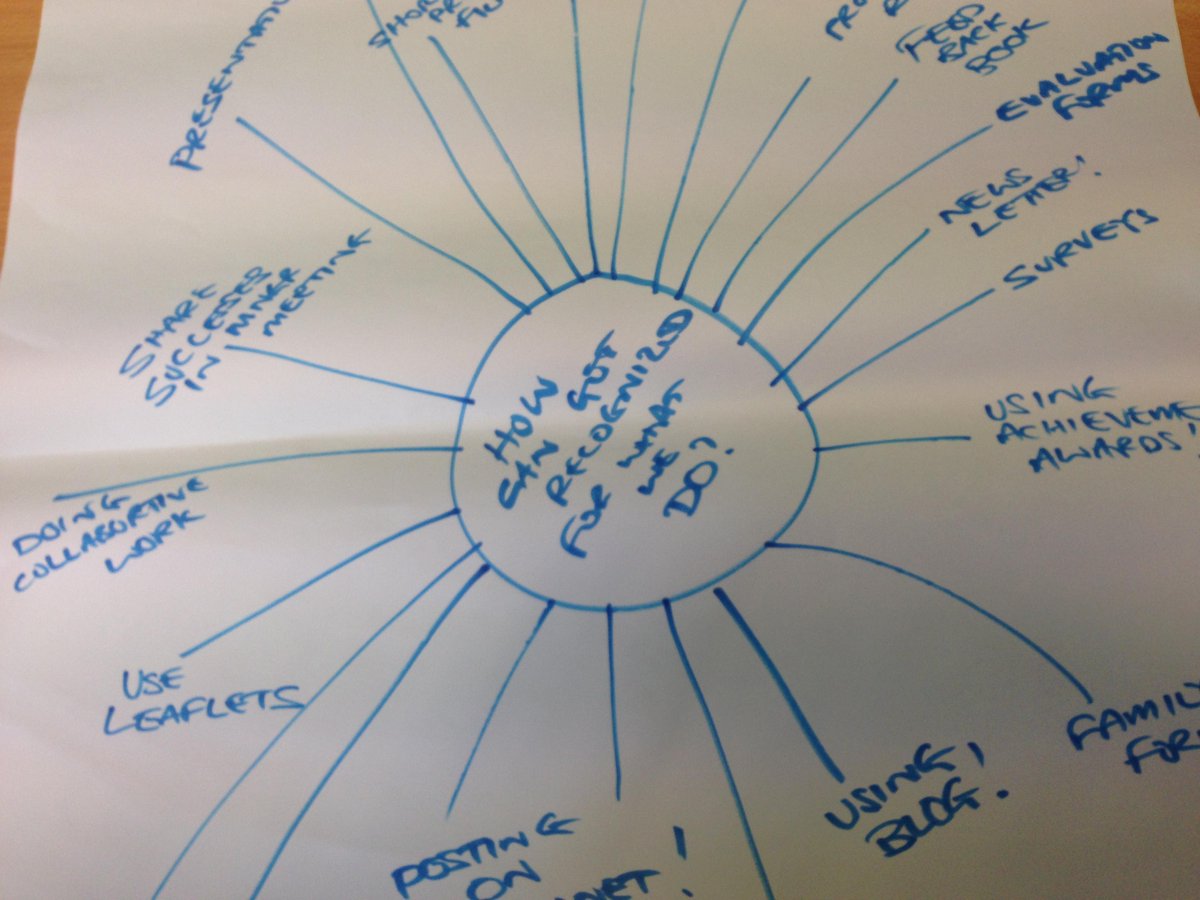 HOW
CAN GET
RECOGNIZED
FOR WHAT
WE
DO?
FEED
BACK
BOOK
EVALUATION
FORMS
NEWS
LETTER!
SURVEYS
USING
ACHIEVEME
AWARDS!
FAMILY
USING!
BLOG.
POSTING
ON
NET!
USE
LEAFLETS
DOING
COLLABORTIVE
WORK
SHARE
SUCCESSES
IN MNGR
MEETING
PRESENTATI